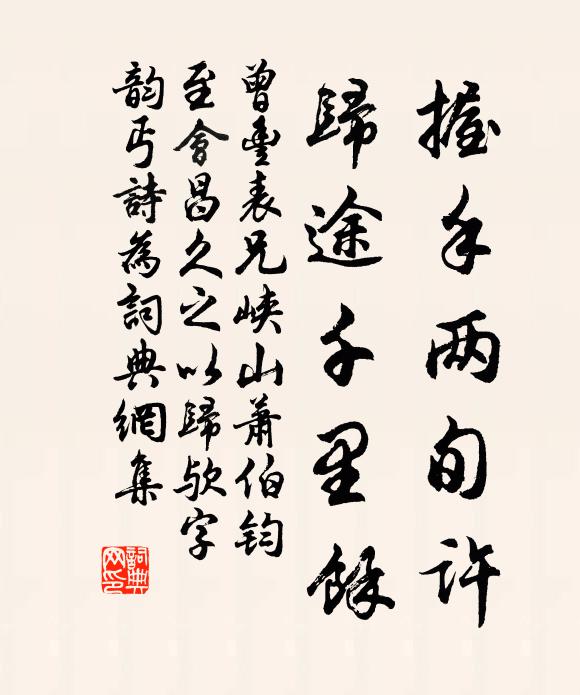 握手两旬許
歸途千里餘
曾豊表兄峽山蕭伯鈞
至會昌久之以歸欤字
韵丐詩為詞典網集
詞典
网印